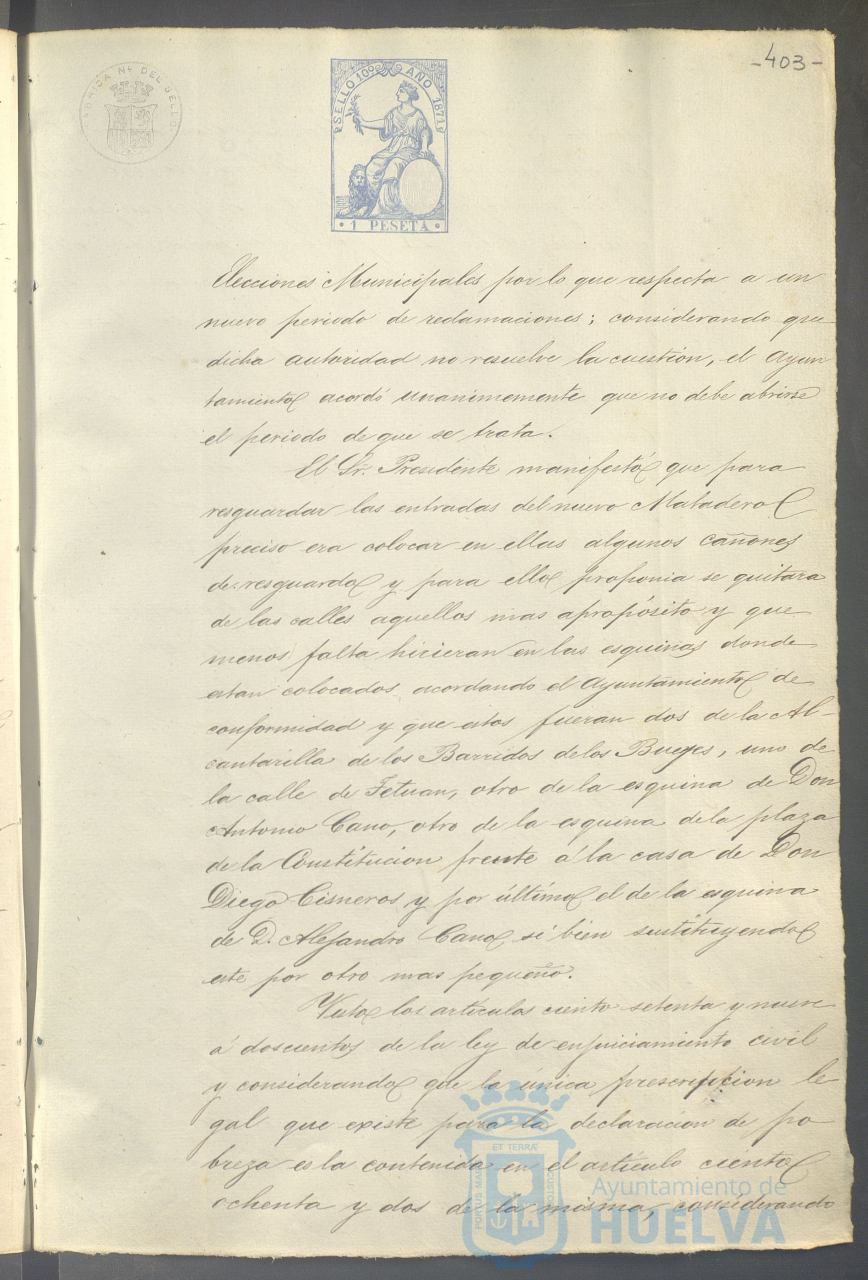 -403-
FABRICA Nl. DEL SELLO
SELLO 10º AÑO 1871
1 PESETA
Elecciones Municipales por lo que respecta a un
nuevo periodo de reclamaciones; considerando que
dicha autoridad no resuelve la cuestión, el Ayun
tamiento acordó unanimemente que no debe abrirse
el periodo de que se trata.
El Sr. Presidente manifestó que para
resguardar las entradas del nuevo Matadero
preciso era colocar en ellas algunos cañones
de resguardo y para ello proponia se quitara
de las calles aquellos mas apropósito y que
menos falta hicieran en las esquinas donde
estan colocados acordando el Ayuntamiento de
conformidad y que estos fueran dos de la Al-
cantarilla de los Barridos de los Bueyes, uno de
la calle de Tetuan, otro de la esquina de Don
Antonio Cano, otro de la esquina de la plaza
de la Constitución frente á la casa de Don
Diego Cisneros y por último el de la esquina
de D. Alejandro Cano si bien sustituyendo
este por otro mas pequeño.
Vistos los artículos ciento setenta y nueve
á doscientos de la ley de enjuiciamiento civil
y considerando que la única prescripcion le
gal que existe para la declaración de po
breza es la contenida en el artículo ciento
ochenta y dos de la misma, considerando
PORTUS MARIS ET TERRAE CUSTODIA
Ayuntamiento de
HUELVA